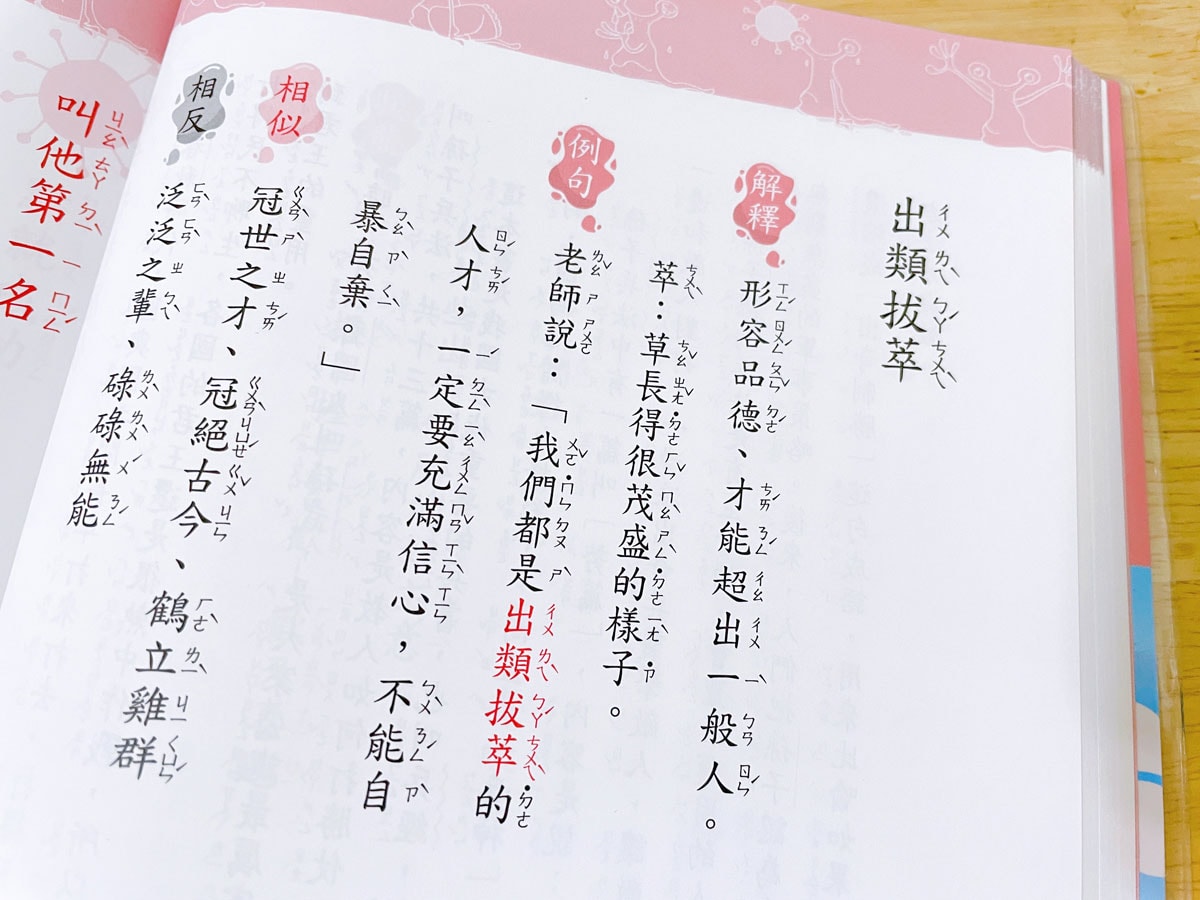 出類拔萃
解釋
形容品德、才能超出一般人。
萃：草長得很茂盛的樣子。
例句
老師說：「我們都是出類拔萃的
人才，一定要充滿信心，不能自
暴自棄。」
相似
冠世之才、冠絕古今、鶴立雞群
相反
泛泛之輩、碌碌無能
叫他第一名